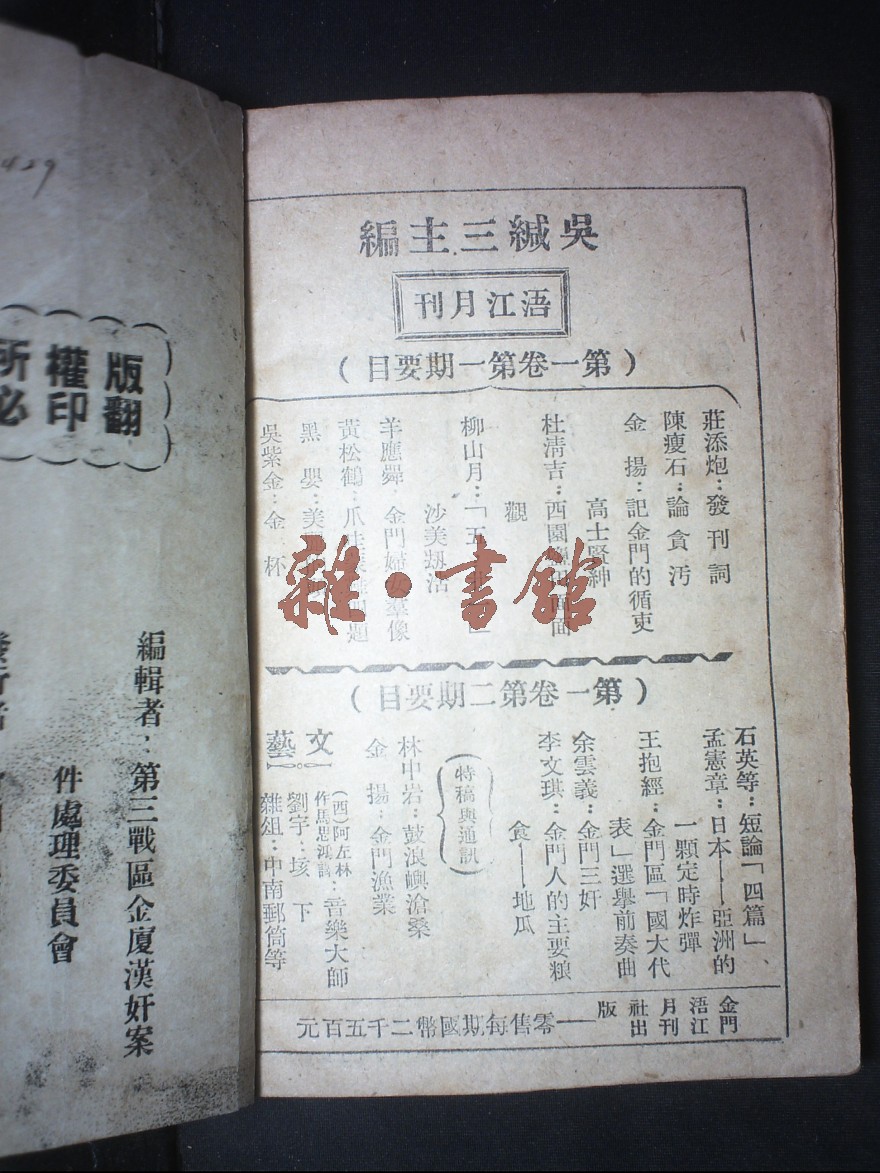 吳緘三主編
浯江月刊
（第一卷第一期要目）
莊添炮：發刊詞
陳瘦石：論貪汚
金揚：記金門的循吏
高士賢紳
杜清吉：西園 面面
觀
柳山月：「五 」
沙美刼活
羊應 金門婦女羣像
黃松鶴：爪 問題
黑嬰：美
吳紫金：金杯
（第一卷第二期要目）
石英等：短論「四篇」
孟憲章：日本——亞洲的
一顆定時炸彈
王抱經：金門區「國大代
表」選舉前奏曲
余雲義：金門三奸
李文琪：金門人的主要粮
食——地瓜
（特稿與通訊）
林中岩：鼓浪嶼滄桑
金揚：金門漁業
文藝
（西）阿左林
作馬思鴻譯：音樂大師
劉宇：垓下
雜俎：中南郵筒等
金門
浯江
月刊
社出
版
——零售每期國幣二千五百元
版權所
翻印必
編輯者：第三戰區金廈漢奸案
件處理委員會
發行者
429
雜·書館